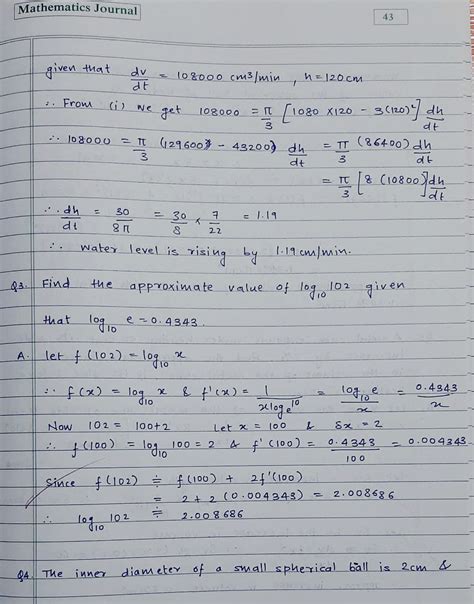 Mathematics Journal
43
given that dv/dt = 108000 cm³/min , h = 120cm
∴ From (i) we get 108000 = π/3 [1080 × 120 - 3(120)²] dh/dt
∴ 108000 = π/3 (129600 - 43200) dh/dt = π/3 (86400) dh/dt
= π/3 [8 (10800)] dh/dt
∴ dh/dt = 30/8π = 30/8 × 7/22 = 1.19
∴ water level is rising by 1.19 cm/min.
Q3. Find the approximate value of log₁₀ 102 given
that log₁₀ e = 0.4343.
A. let f(102) = log₁₀ x
∴ f(x) = log₁₀ x & f'(x) = 1/(x logₑ 10) = log₁₀ e/x = 0.4343/x
Now 102 = 100+2 Let x = 100 & δx = 2
∴ f(100) = log₁₀ 100 = 2 & f'(100) = 0.4343/100 = 0.004343
Since f(102) ≑ f(100) + 2f'(100)
= 2 + 2 (0.004343) = 2.008686
∴ log₁₀ 102 ≑ 2.008686
Q4. The inner diameter of a small spherical ball is 2cm &